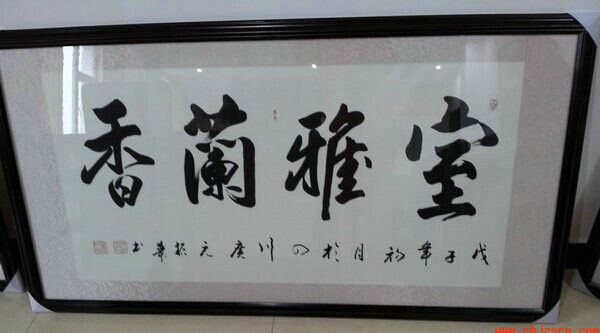 室雅蘭香
戊子年初月於四川廣元振業书